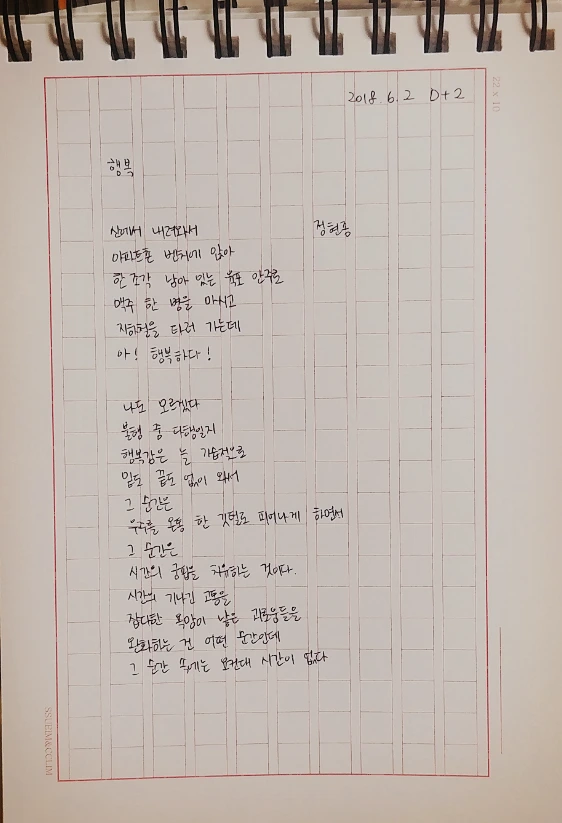 2018. 6. 2 D+2
22 x 10
행복
정현종
산에서 내려와서
아파트촌 벤치에 앉아
한 조각 남아 있는 육포 안주로
맥주 한 병을 마시고
지하철을 타러 가는데
아! 행복하다!
나도 모르겠다
불행 중 다행일지
행복감은 늘 기습적으로
밑도 끝도 없이 와서
그 순간은
우주를 온통 한 깃털로 피어나게 하면서
그 순간은
시간의 궁핍을 치유하는 것이다.
시간의 기나긴 고통을
잡다한 욕망이 낳은 괴로움들을
완화하는 건 어떤 순간인데
그 순간 속에는 요컨대 시간이 없다